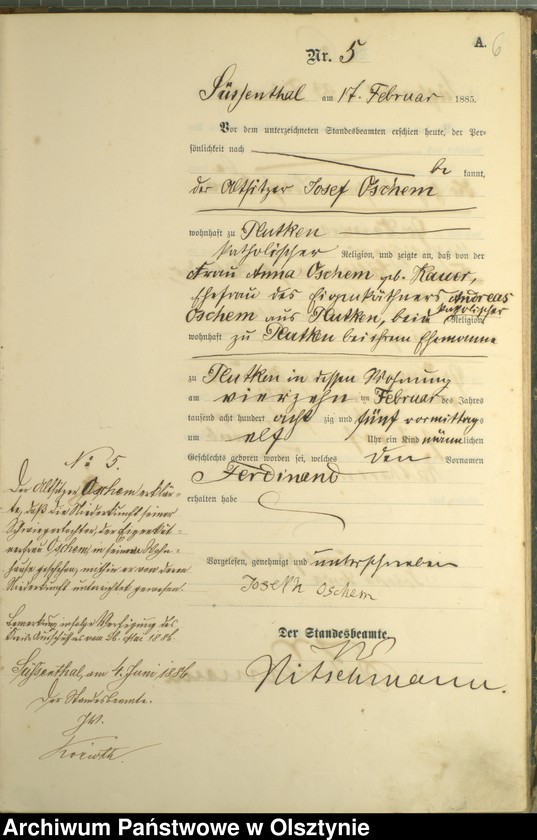 A. 6
Nr. 5
Süssenthal am 17. Februar 1885.
Vor dem unterzeichneten Standesbeamten erschien heute, der Per-
sönlichkeit nach
be kannt,
der Altsitzer Josef Oschem
wohnhaft zu Plutken
katholischer Religion, und zeigte an, daß von der
Frau Anna Oschem geb. Kauer,
Ehefrau des Eigenkäthners Andreas
Oschem aus Plutken, beide katholischer Religion,
wohnhaft zu Plutken bei ihrem Ehemanne
zu Plutken in dessen Wohnung
am vierzehn ten Februar des Jahres
tausend acht hundert acht zig und fünf vormittags
um elf Uhr ein Kind männlichen
Geschlechts geboren worden sei, welches den Vornamen
Ferdinand
erhalten habe
No 5.
Der Altsitzer Oschem erklär-
te, daß die Niederkunft seiner
Schwiegertochter, der Eigenkät-
nerfrau Oschem, in seinem Wohn-
hause geschehen, mithin er von deren
Niederkunft unterrichtet gewesen.
Bemerkung infolge Verfügung des
Kreis Ausschusses vom 26. Mai 1886.
Süssenthal, am 4. Juni 1886
Der Standesbeamte.
Vorgelesen, genehmigt und unterschrieben
Joseph Oschem
Der Standesbeamte.
Nitschmann.
Archiwum Państwowe w Olsztynie